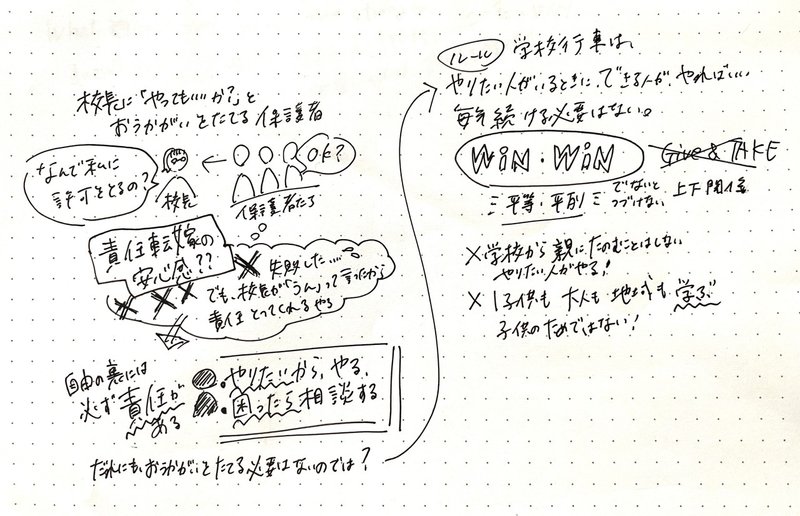 校長に「やってもいいか?」と
おうかがいをたてる保護者
なんで私に
許可をとるの?
OK?
校長
保護者たち
責任転嫁の
安心感??
失敗した……
でも、校長が「うん」って言ったから
責任とってくれるやろ
自由の裏には
必ず責任が
ある
・やりたいから、やる、
・困ったら相談する
だれにもおうかがいをたてる必要はないのでは?
ルール 学校行事は、
やりたい人がいるときに、できる人が、やればいい
毎年続ける必要はない。
WiN・WiN
Give & TAKE
平等・平列
でないと
つづけない
上下関係
×学校から親にたのむことはしない
やりたい人がやる!
×子供も大人も地域も学ぶ
子供のためではない!